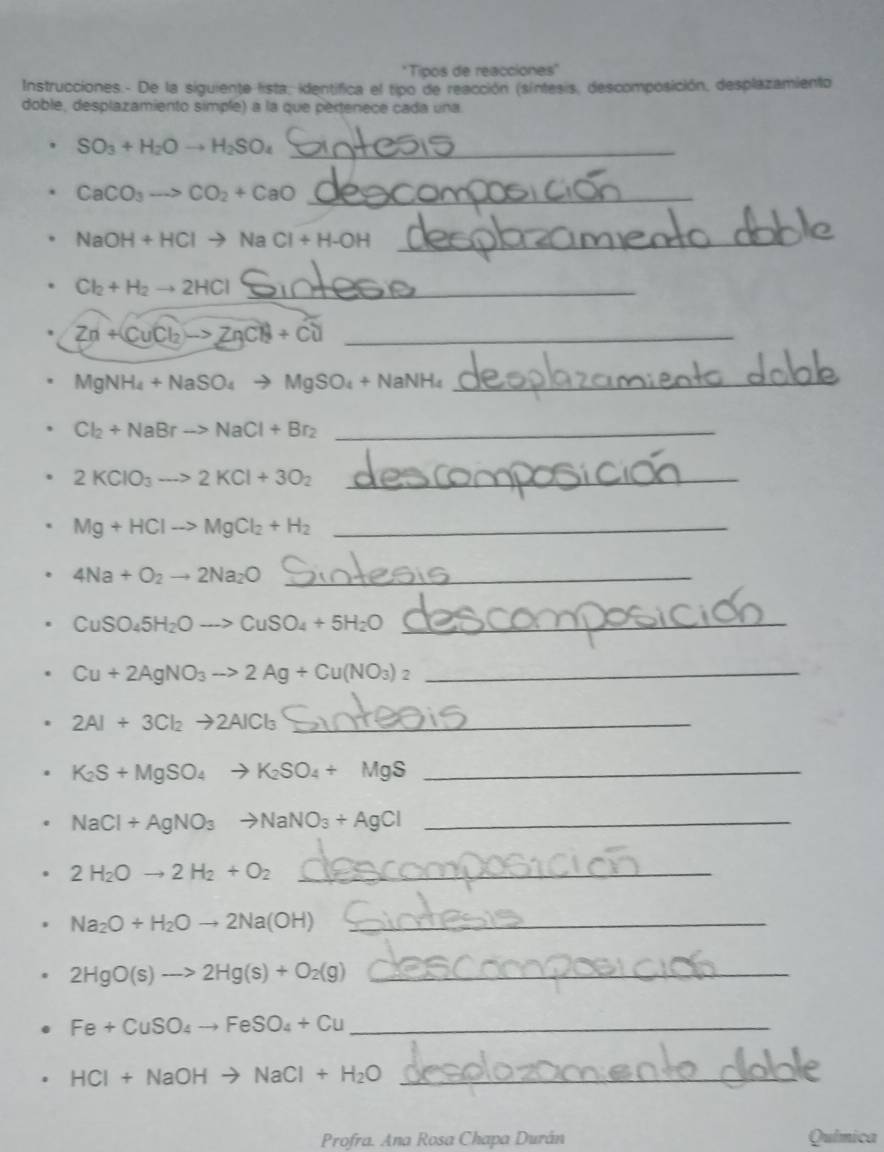 "Tipos de reacciones"
Instrucciones.- De la siguiente lista; identifica el tipo de reacción (síntesis, descomposición, desplazamiento
doble, desplazamiento simple) a la que pertenece cada una.
• SO₃ + H₂O → H₂SO₄ Sintesis
• CaCO₃ ---> CO₂ + CaO descomposición
• NaOH + HCl → Na Cl + H-OH desplazamiento doble
• Cl₂ + H₂ → 2HCl Sintesis
• Zn + CuCl₂ --> ZnCl₂ + Cu
• MgNH₄ + NaSO₄ → MgSO₄ + NaNH₄ desplazamiento doble
• Cl₂ + NaBr --> NaCl + Br₂
• 2 KClO₃ ---> 2 KCl + 3O₂ descomposición
• Mg + HCl --> MgCl₂ + H₂
• 4Na + O₂ → 2Na₂O Sintesis
• CuSO₄5H₂O ---> CuSO₄ + 5H₂O descomposición
• Cu + 2AgNO₃ --> 2 Ag + Cu(NO₃) ₂
• 2Al + 3Cl₂ → 2AlCl₃ Sintesis
• K₂S + MgSO₄ → K₂SO₄ + MgS
• NaCl + AgNO₃ → NaNO₃ + AgCl
• 2 H₂O → 2 H₂ + O₂ descomposición
• Na₂O + H₂O → 2Na(OH) Sintesis
• 2HgO(s) ---> 2Hg(s) + O₂(g) descomposición
• Fe + CuSO₄ → FeSO₄ + Cu
• HCl + NaOH → NaCl + H₂O desplazamiento doble
Profra. Ana Rosa Chapa Durán Química